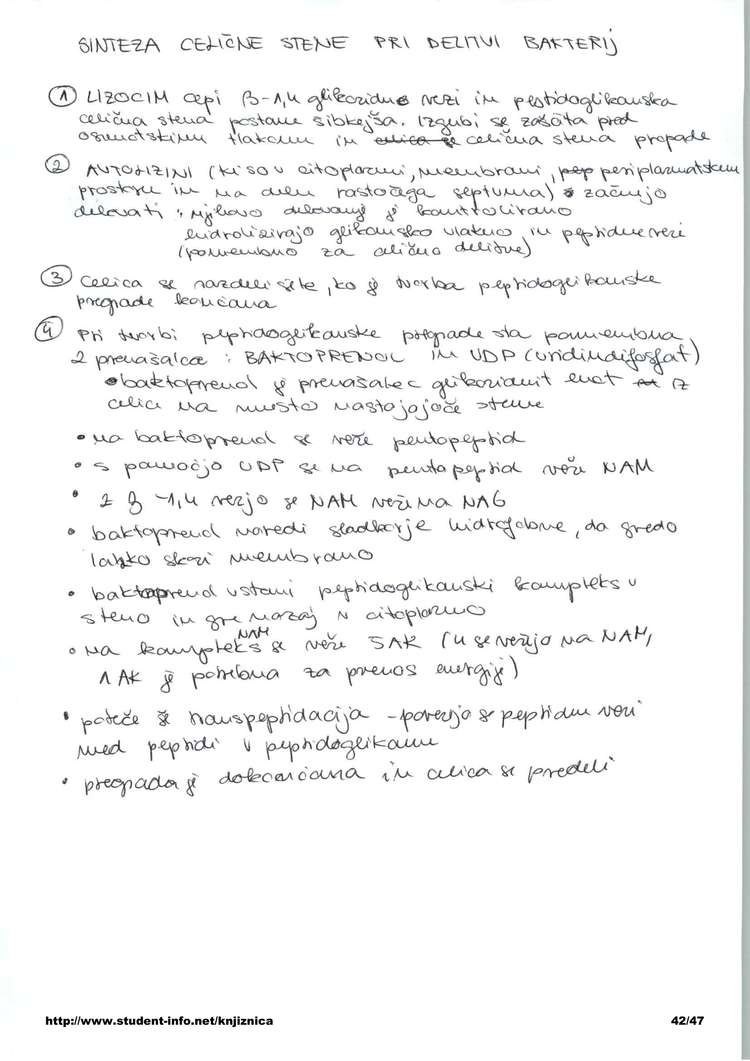 SINTEZA CELIČNE STENE PRI DELITVI BAKTERIJ
① LIZOCIM cepi β-1,4 glikozidne vezi in peptidoglikanska
celična stena postane šibkejša. Izgubi se zaščita pred
osmotskim tlakom in celica se celična stena propade
② AVTOLIZINI (ki so v citoplazmi, membrani, pep periplazmatskem
prostoru in na delu rastočega septuma) začnejo
delovati; njihovo delovanje je kontrolirano
hidrolizirajo glikansko vlakno in peptidne vezi
(pomembno za celično delitev)
③ Celica se razdeli šele, ko je tvorba peptidoglikanske
pregrade končana
④ Pri tvorbi peptidoglikanske pregrade sta pomembna
2 prenašalca : BAKTOPRENOL in UDP (uridindifosfat)
• baktoprenol je prenašalec glikozidnih enot iz
celice na mesto nastajajoče stene
• na baktoprenol se veže pentapeptid
• s pomočjo UDP se na pentapeptid veže NAM
• z β-1,4 vezjo se NAM veže na NAG
• baktoprenol naredi sladkorje hidrofobne, da gredo
lahko skozi membrano
• baktoprenol vstavi peptidoglikanski kompleks v
steno in gre nazaj v citoplazmo
• na kompleks NAM se veže 5AK (4 se vežejo na NAM,
1 AK je potrebna za prenos energije)
• poteče še transpeptidacija - povežejo se peptidne vezi
med peptidi v peptidoglikanu
• pregrada je dokončana in celica se predeli
http://www.student-info.net/knjiznica
42/47